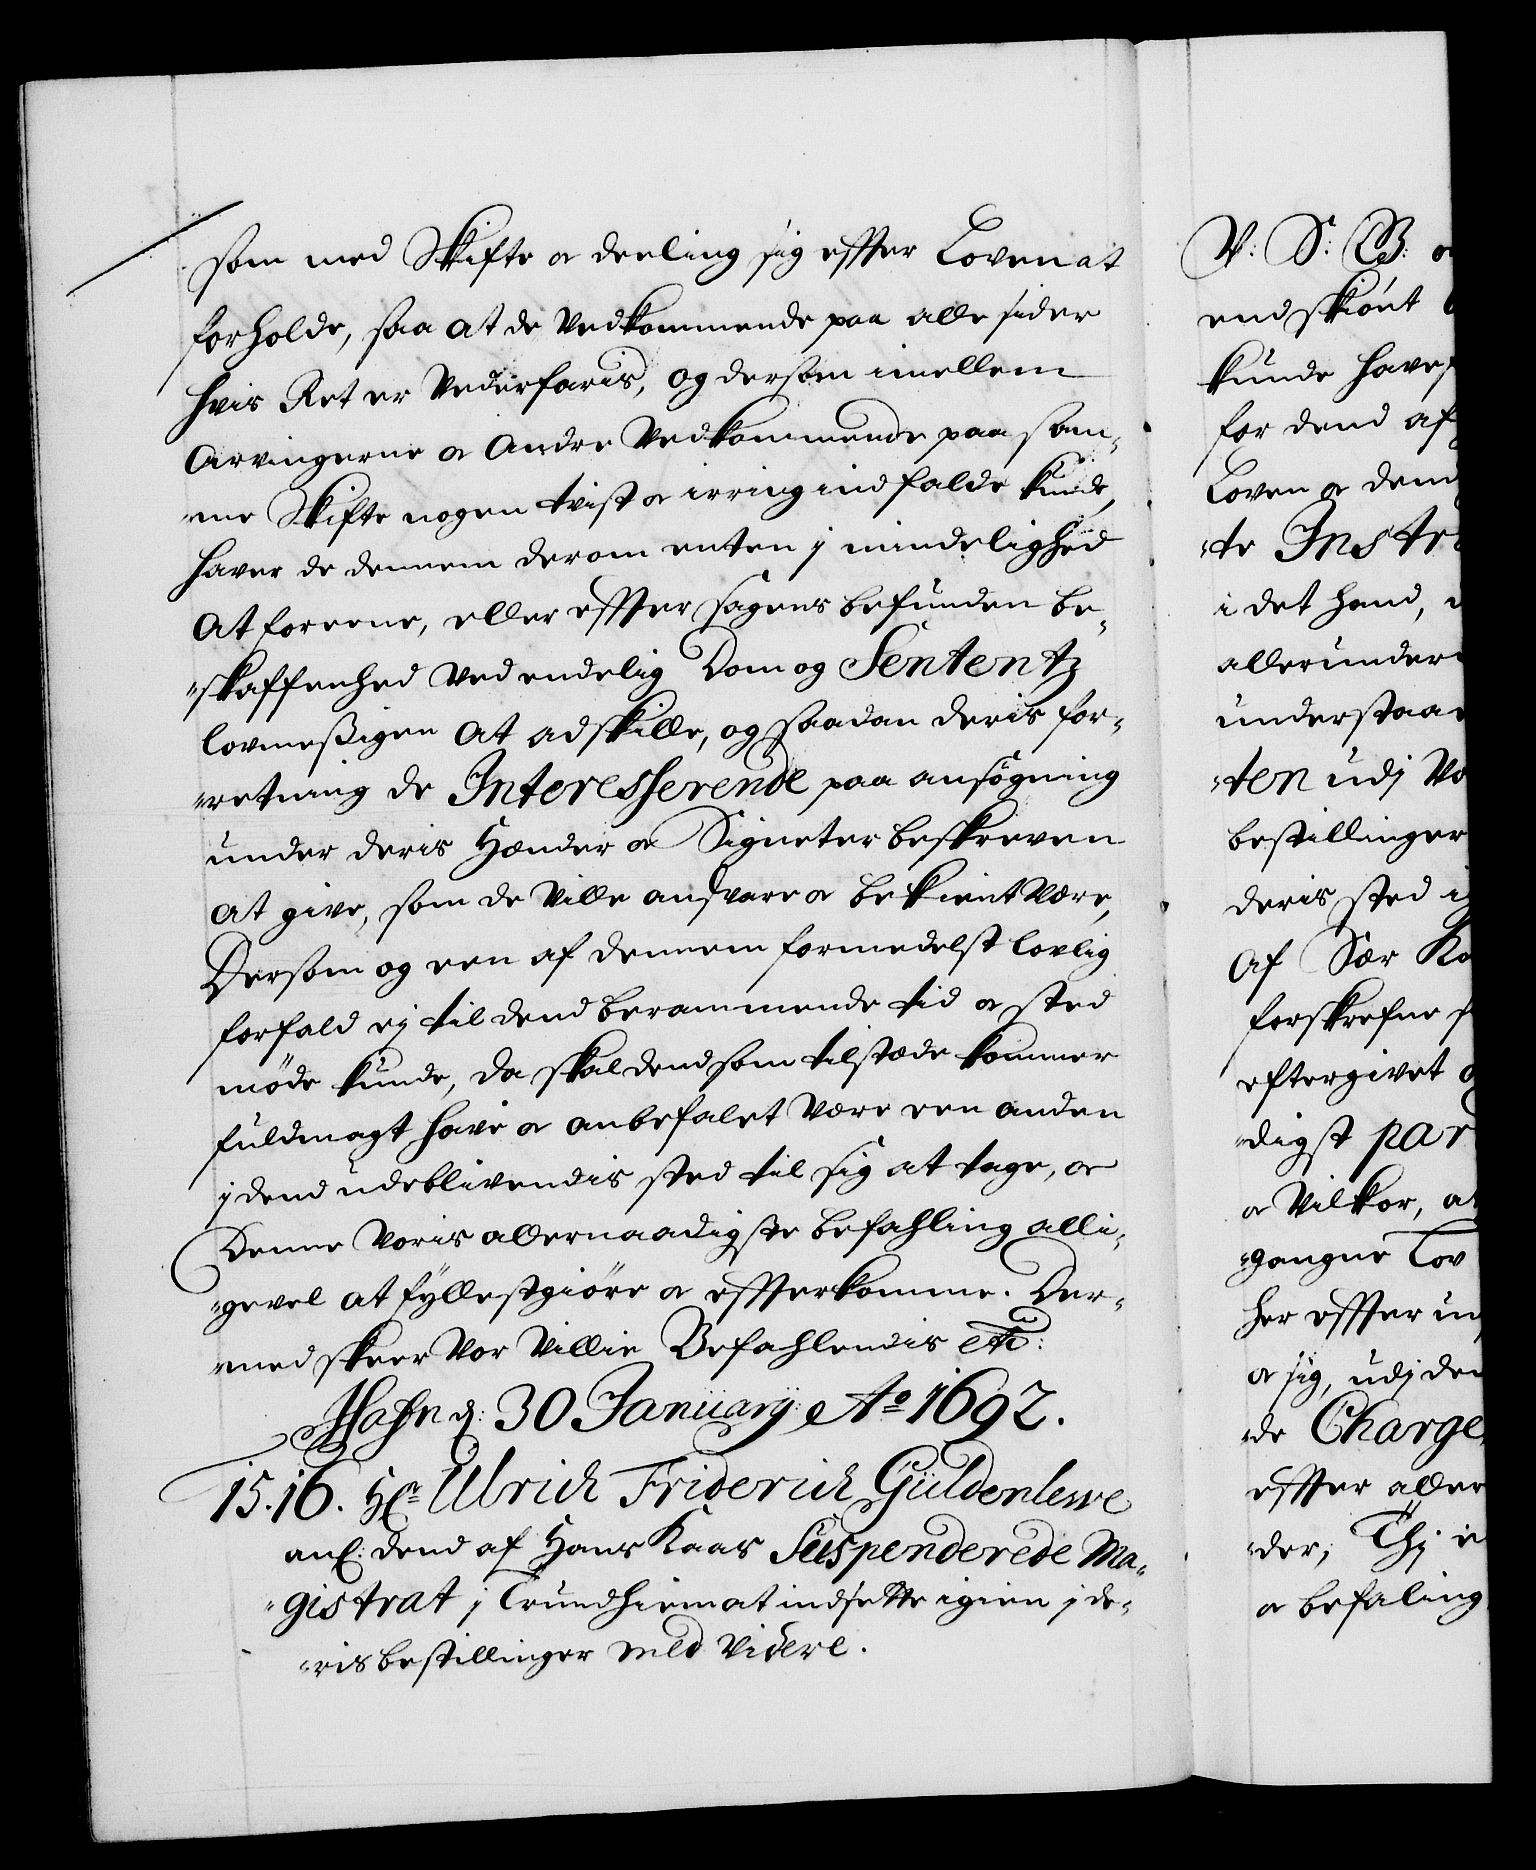 som med Skifte og deeling sig effter Loven at
forholde, saa at de Vedkommende paa alle sider
hvis Ret er Vederfaris, og dersom imellem
Arvingerne og Andre Vedkommende paa sam-
-me Skifte nogen tvist og irring indfalde kunde,
haver de dennem derom enten j mindelighed
At foreene, eller effter sagens befunden be-
-skaffenhed Ved endelig Dom og Sententz
lovmeßigen At adskille, og saadan deris for-
-retning de Interesserende paa ansøgning
under deris Hænder og Signeter beskreven
At give, som de Ville andsvare og bekient Være,
Dersom og een af dennem formedelst lovlig
forfald ej til dend berammende tid og sted
møde kunde, da skal dend som tilstæde kommer
fuldmagt have og anbefalet Være een anden
j dend udeblivendis sted til sig at tage, og
Denne Voris allernaadigste befahling alli-
-gevel At fyllestgiøre og effterkomme. Der-
-med skeer Vor Villie Befahlendis etc:
Hafn d: 30 January Ao 1692.
15.16. Hr Ulrich Friderich Güldenlewe
anl: dend af Hans Kaas Suspenderede Ma-
-gistrat j Trundhiem at indsette igien j de-
-ris bestillinger med Videre.
V: S: G: og
endskiönt
kunde haves
for dend af
Loven og dend
-te Instr
i det hand,
allerunder
understaa
-ten udj Vo
bestillinger
deris sted i
Af Sær Ko
forskrefne s
eftergivet o
-digst par
og Vilkor, at
-gangne Lov
her effter u
og sig, udj den
-de Charge
effter aller
-der, Thj
og befaling